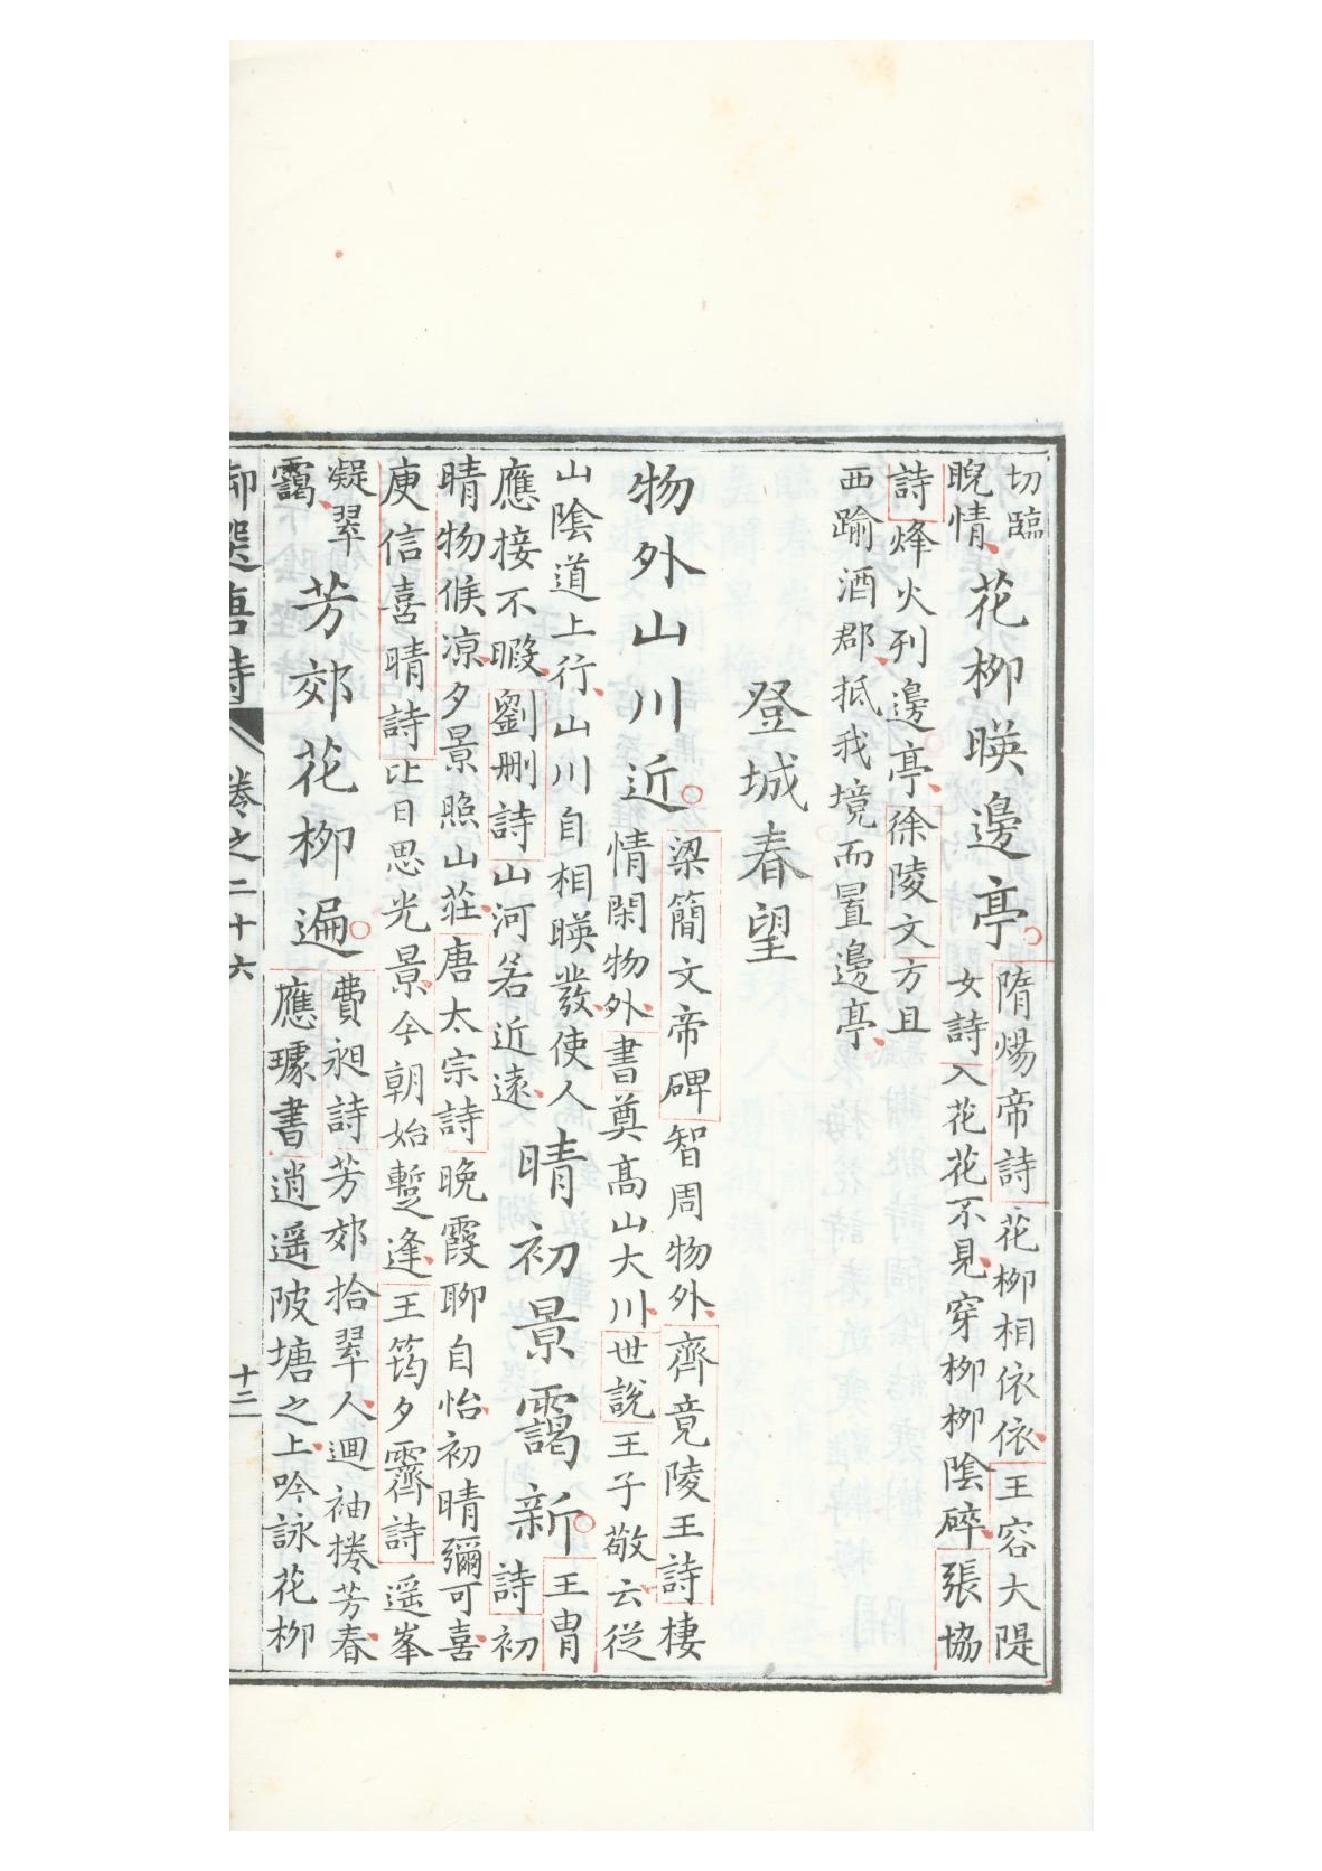 切臨
睨情
花柳暎邊亭
隋煬帝詩花柳相依依王容大隄
女詩入花花不見穿柳柳陰碎張協
詩烽火列邊亭徐陵文方且
西踰酒郡抵我境而置邊亭
登城春望
物外山川近
梁簡文帝碑智周物外齊竟陵王詩棲
情閑物外書奠高山大川世說王子敬云從
山陰道上行山川自相暎發使人
應接不暇劉刪詩山河若近遠
晴初景靄新
王胄
詩初
晴物候凉夕景照山莊唐太宗詩晚霞聊自怡初晴彌可喜
庾信喜晴詩比日思光景今朝始蹔逢王筠夕霽詩遥峯
凝翠
靄
芳郊花柳遍
費昶詩芳郊拾翠人迴袖捲芳春
應璩書逍遥陂塘之上吟詠花柳
御選唐詩
卷之二十六